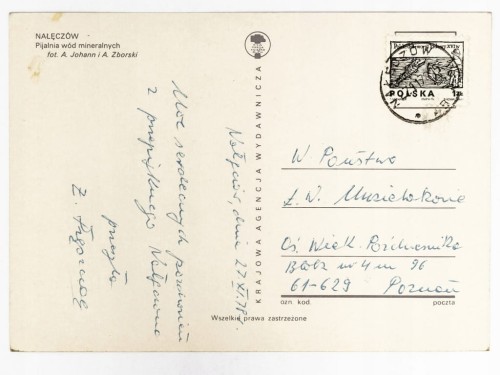 NAŁĘCZÓW
Pijalnia wód mineralnych
fot. A. Johann i A. Zborski
KRAJOWA AGENCJA WYDAWNICZA
Nałęczów, dnia 27 XI 78r.
Moc serdecznych pozdrowień
z przepięknego Nałęczowa
przesyła
Z.
POLSKA
W Państwo
Ł. W.
Oś. Wiek.
Blok nr 4 m 96
61-629 Poznań
ozn. kod. poczta
Wszelkie prawa zastrzeżone